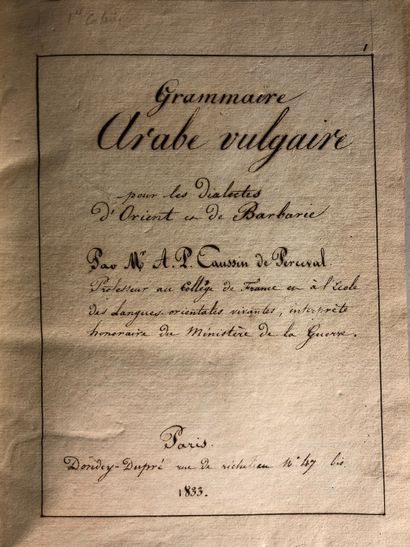 1er Cahier
1
Grammaire
Arabe vulgaire
pour les dialectes
d'Orient et de Barbarie
Par Mr A. P. Caussin de Perceval.
Professeur au Collège de France et à l'Ecole
des Langues orientales vivantes, interprète
honoraire du Ministère de la Guerre.
Paris.
Dondey-Dupré rue de richelieu No 47 bis
1833.